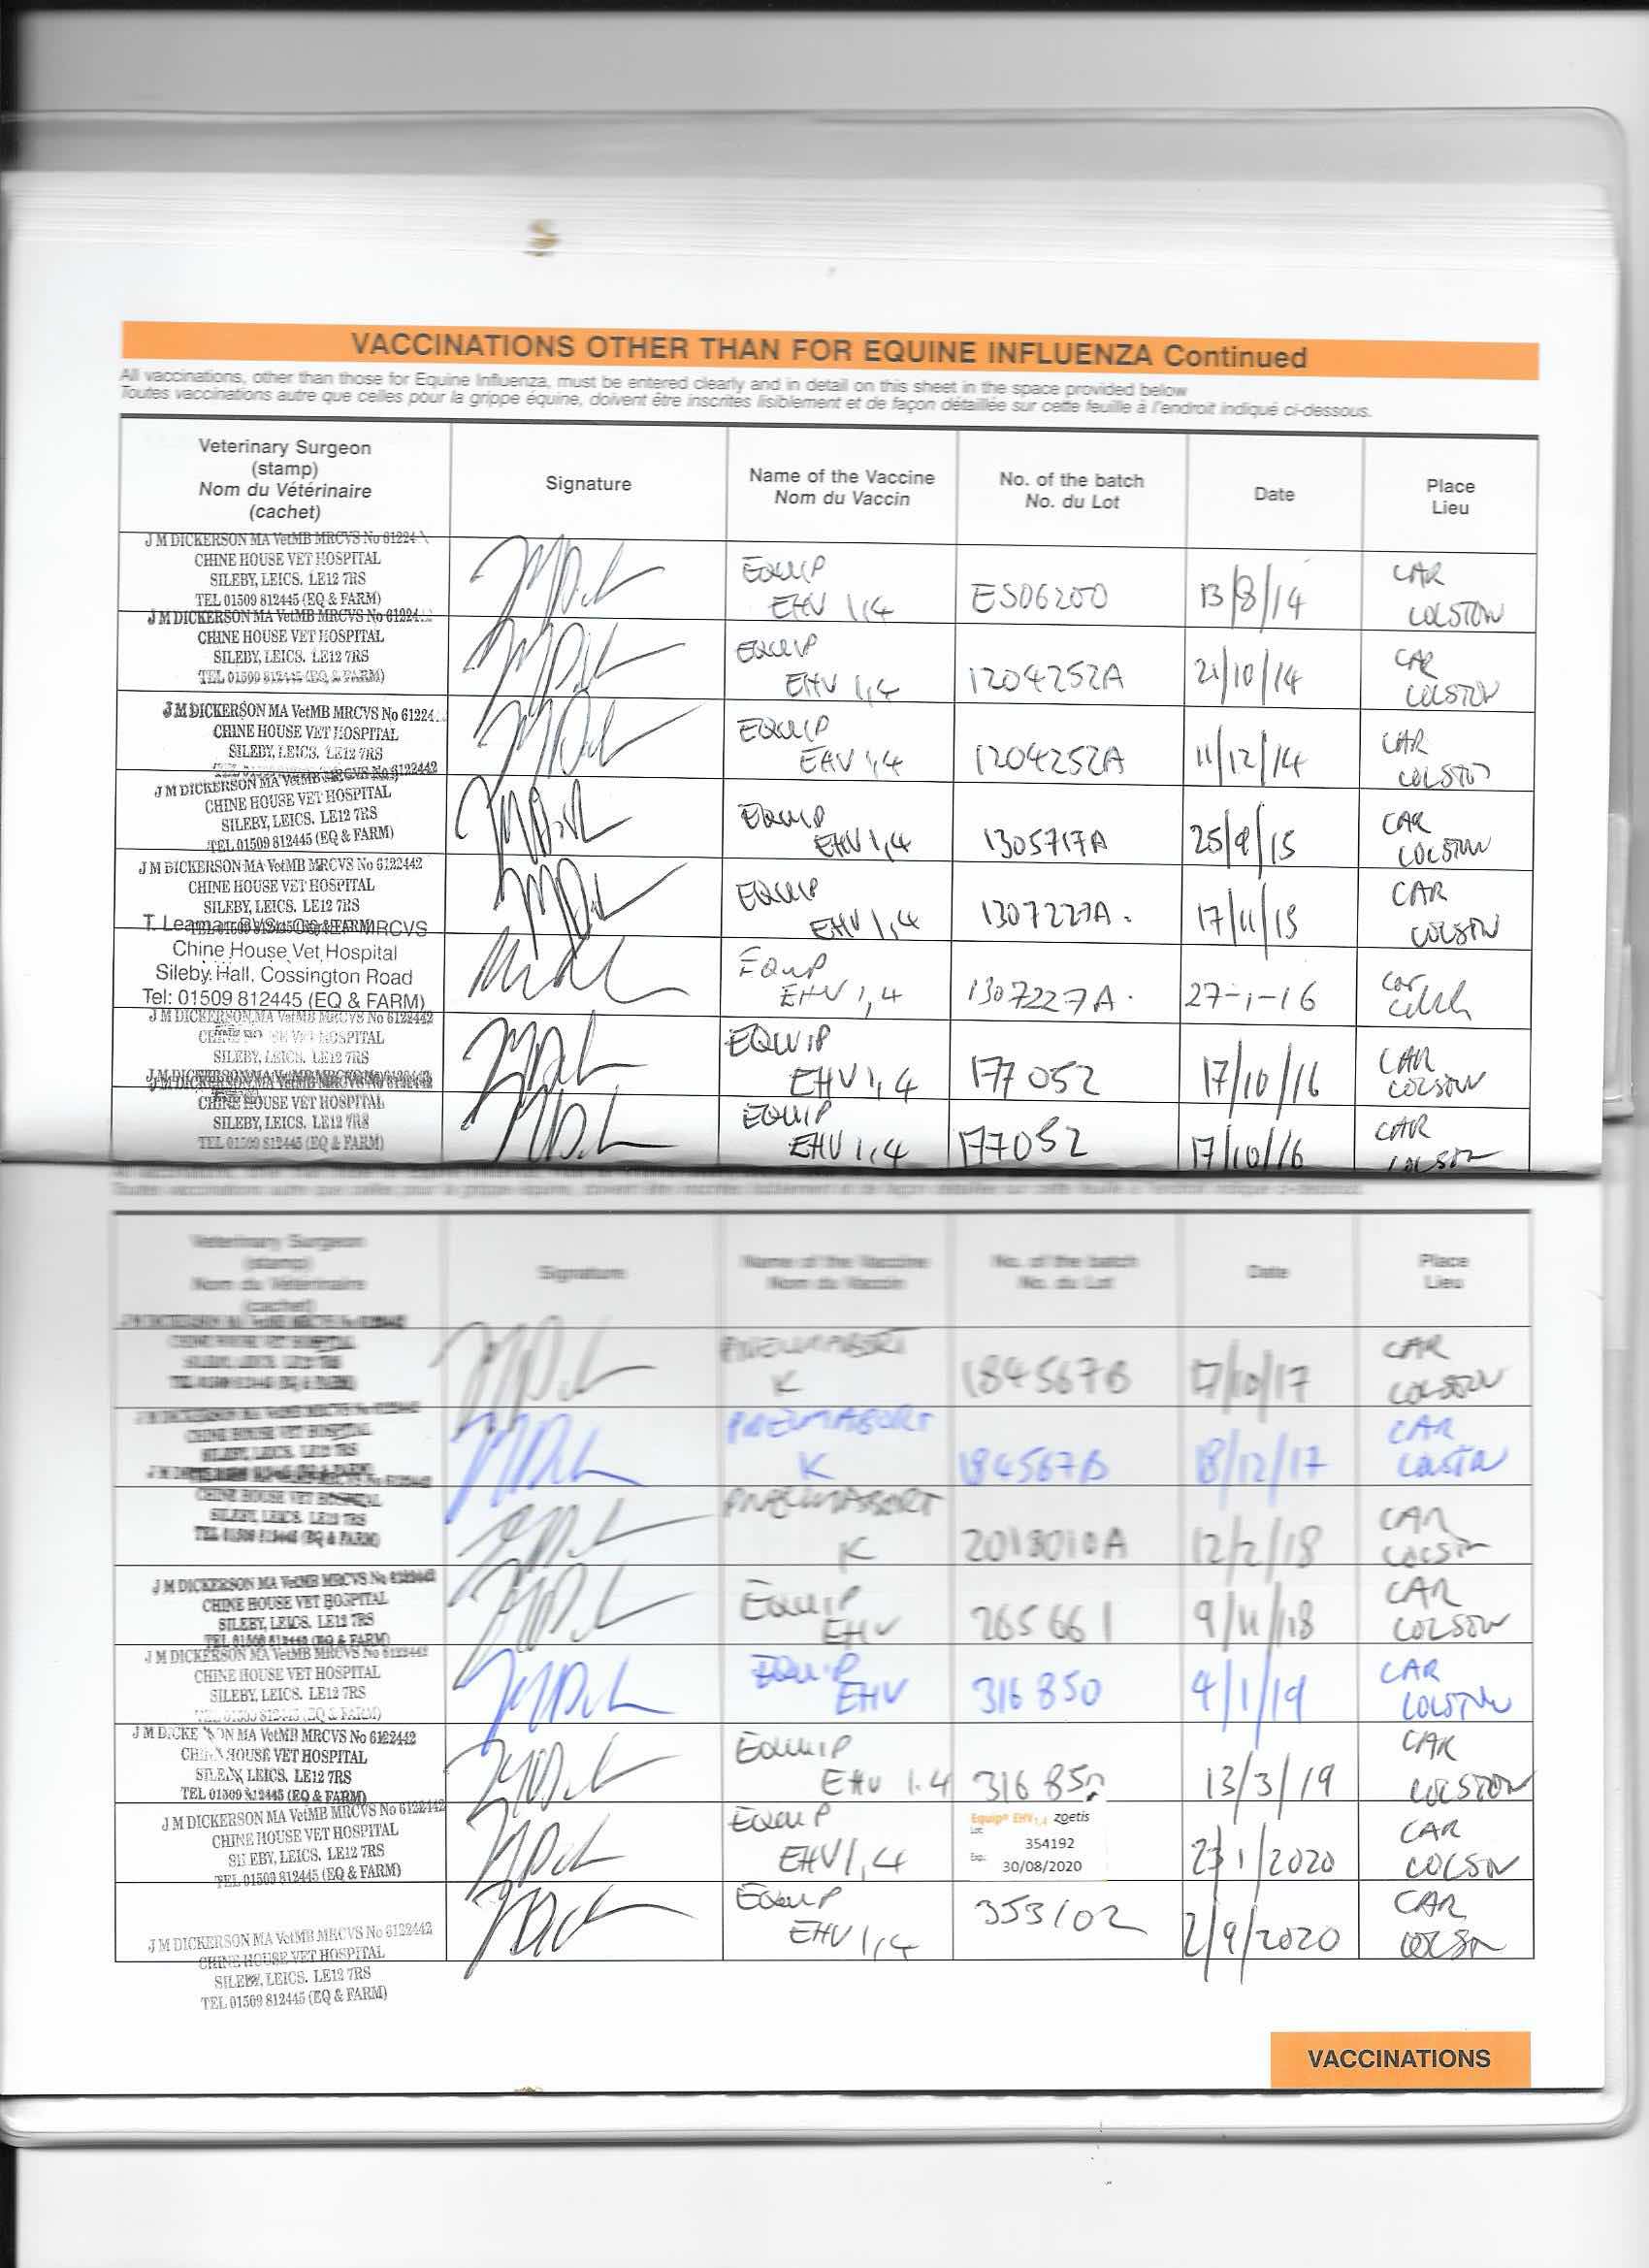 VACCINATIONS OTHER THAN FOR EQUINE INFLUENZA Continued
All vaccinations, other than those for Equine Influenza, must be entered clearly and in detail on this sheet in the space provided below
Toutes vaccinations autre que celles pour la grippe équine, doivent être inscrites lisiblement et de façon détaillée sur cette feuille à l'endroit indiqué ci-dessous.
Veterinary Surgeon (stamp) Nom du Vétérinaire (cachet) Signature Name of the Vaccine Nom du Vaccin No. of the batch No. du Lot Date Place Lieu
J M DICKERSON MA VetMB MRCVS No 61224
CHINE HOUSE VET HOSPITAL
SILEBY, LEICS. LE12 7RS
TEL 01509 812445 (EQ & FARM)
EQUIP EHV 1,4 ES06200 13/8/14 CAR COLSTON
J M DICKERSON MA VetMB MRCVS No 61224
CHINE HOUSE VET HOSPITAL
SILEBY, LEICS. LE12 7RS
TEL 01509 812445 (EQ & FARM)
EQUIP EHV 1,4 1204252A 21/10/14 CAR COLSTON
J M DICKERSON MA VetMB MRCVS No 61224
CHINE HOUSE VET HOSPITAL
SILEBY, LEICS. LE12 7RS
EQUIP EHV 1,4 1204252A 11/12/14 CAR COLSTON
J M DICKERSON MA VetMB MRCVS No 6122442
CHINE HOUSE VET HOSPITAL
SILEBY, LEICS. LE12 7RS
TEL 01509 812445 (EQ & FARM)
EQUIP EHV 1,4 1305717A 25/9/15 CAR COLSTON
J M DICKERSON MA VetMB MRCVS No 6122442
CHINE HOUSE VET HOSPITAL
SILEBY, LEICS. LE12 7RS
EQUIP EHV 1,4 1307227A. 17/11/15 CAR COLSTON
T. Leaman MRCVS
Chine House Vet Hospital
Sileby Hall, Cossington Road
Tel: 01509 812445 (EQ & FARM)
EQUIP EHV 1,4 1307227A. 27-1-16 Car
J M DICKERSON MA VetMB MRCVS No 6122442
HOSPITAL
SILEBY, LEICS. LE12 7RS
EQUIP EHV 1,4 177052 17/10/16 CAR COLSTON
J M DICKERSON MA VetMB MRCVS No 6122442
CHINE HOUSE VET HOSPITAL
SILEBY, LEICS. LE12 7RS
TEL 01509 812445 (EQ & FARM)
EQUIP EHV 1,4 177052 17/10/16 CAR COLSTON
Veterinary Surgeon (stamp) Nom du Vétérinaire (cachet) Signature Name of the Vaccine Nom du Vaccin No. of the batch No. du Lot Date Place Lieu
CHINE HOUSE VET HOSPITAL
SILEBY, LEICS. LE12 7RS
TEL 01509 812445 (EQ & FARM)
PNEUMABORT K 184567B 17/10/17 CAR COLSTON
J M DICKERSON MA VetMB MRCVS No 6122442
CHINE HOUSE VET HOSPITAL
SILEBY, LEICS. LE12 7RS
PNEUMABORT K 184567B 18/12/17 CAR COLSTON
CHINE HOUSE VET HOSPITAL
SILEBY, LEICS. LE12 7RS
TEL 01509 812445 (EQ & FARM)
PNEUMABORT K 2018010A 12/2/18 CAR COLSTON
J M DICKERSON MA VetMB MRCVS No 6122442
CHINE HOUSE VET HOSPITAL
SILEBY, LEICS. LE12 7RS
TEL 01509 812445 (EQ & FARM)
EQUIP EHV 265661 9/11/18 CAR COLSTON
J M DICKERSON MA VetMB MRCVS No 6122442
CHINE HOUSE VET HOSPITAL
SILEBY, LEICS. LE12 7RS
TEL 01509 812445 (EQ & FARM)
EQUIP EHV 316850 4/1/19 CAR COLSTON
MA VetMB MRCVS No 6122442
HOUSE VET HOSPITAL
LEICS. LE12 7RS
TEL 01509 812445 (EQ & FARM)
EQUIP EHV 1.4 316850 13/3/19 CAR COLSTON
J M DICKERSON MA VetMB MRCVS No 6122442
CHINE HOUSE VET HOSPITAL
LEICS. LE12 7RS
TEL 01509 812445 (EQ & FARM)
EQUIP EHV 1,4
Equip® EHV1,4 zoetis
Lot: 354192
Exp: 30/08/2020
1/2020 CAR COLSTON
EQUIP EHV 1,4 353102 2/9/2020 CAR COLSTON
J M DICKERSON MA VetMB MRCVS No 6122442
CHINE HOUSE VET HOSPITAL
SILEBY, LEICS. LE12 7RS
TEL 01509 812445 (EQ & FARM)
VACCINATIONS